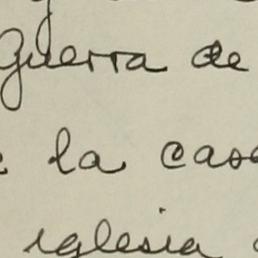 Guerra de
la casa
iglesia